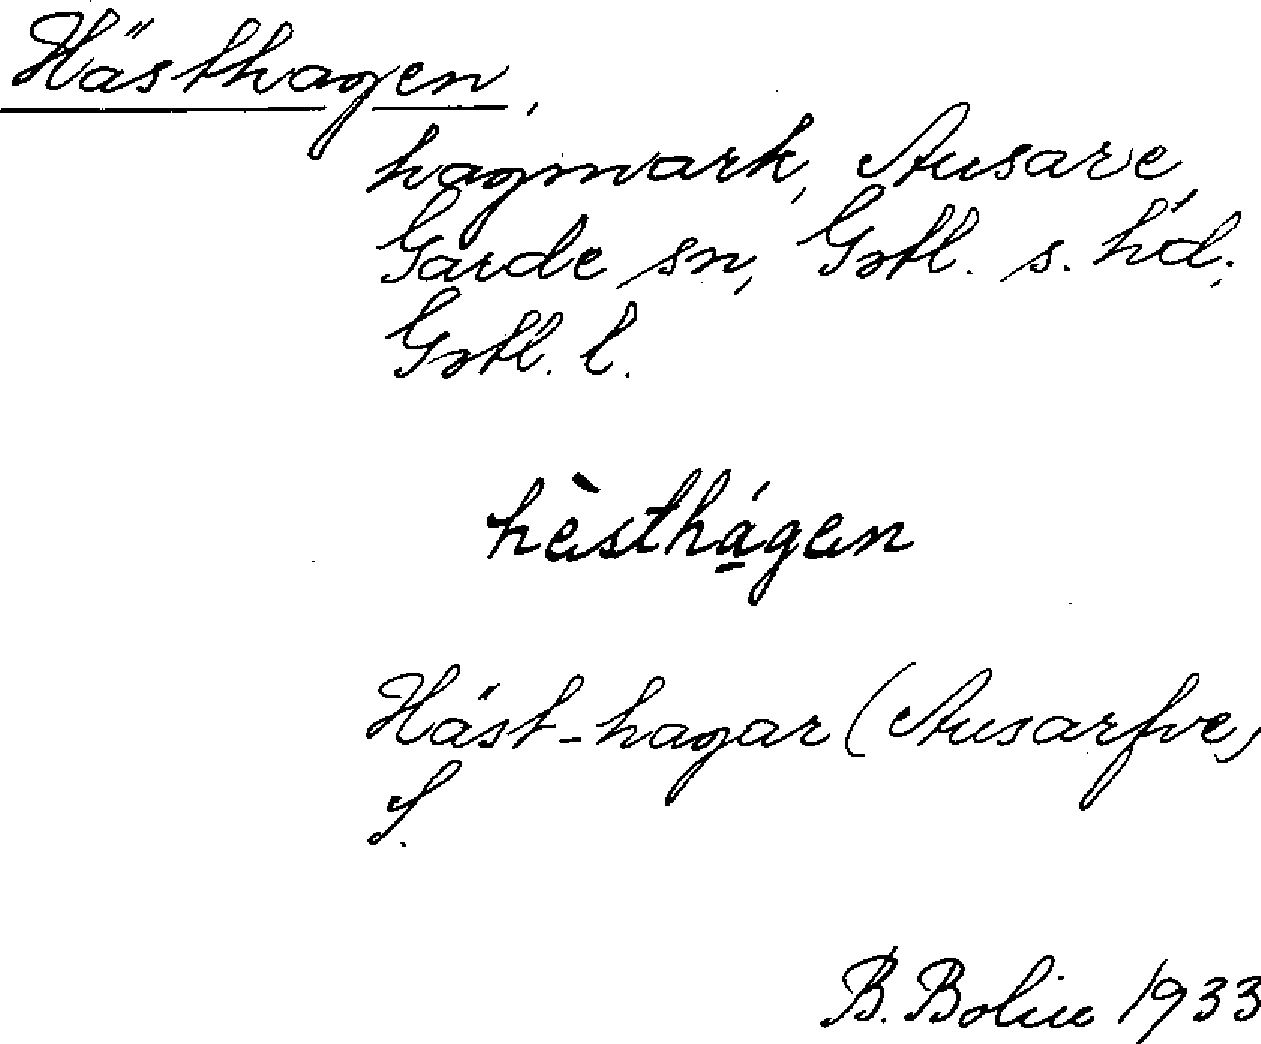 Hästhagen,
hagmark, Ausare,
Garde sn, Gotl. s. hd.
Gotl. l.
hèsthá̱gen
Häst-hagar (Ausarfve,
S.
B. Bolin 1933